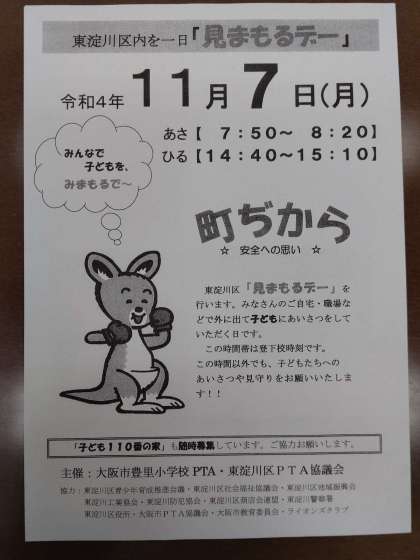 東淀川区内を一日「見まもるデー」
令和4年 11月7日(月)
あさ【 7:50～ 8:20】
ひる【14:40～15:10】
みんなで
子どもを、
みまもるで～
町ぢから
☆ 安全への思い ☆
東淀川区「見まもるデー」を
行います。みなさんのご自宅・職場な
どで外に出て子どもにあいさつをして
いただく日です。
この時間帯は登下校時刻です。
この時間以外でも、子どもたちへの
あいさつや見守りをお願いいたしま
す！！
「子ども110番の家」も随時募集しています。ご協力お願いします。
主催：大阪市豊里小学校PTA・東淀川区PTA協議会
協力：東淀川区青少年育成推進会議・東淀川区社会福祉協議会・東淀川区地域振興会
東淀川工業協会・東淀川防犯協会・東淀川区商店会連盟・東淀川警察署
東淀川区役所・大阪市PTA協議会・大阪市教育委員会・ライオンズクラブ